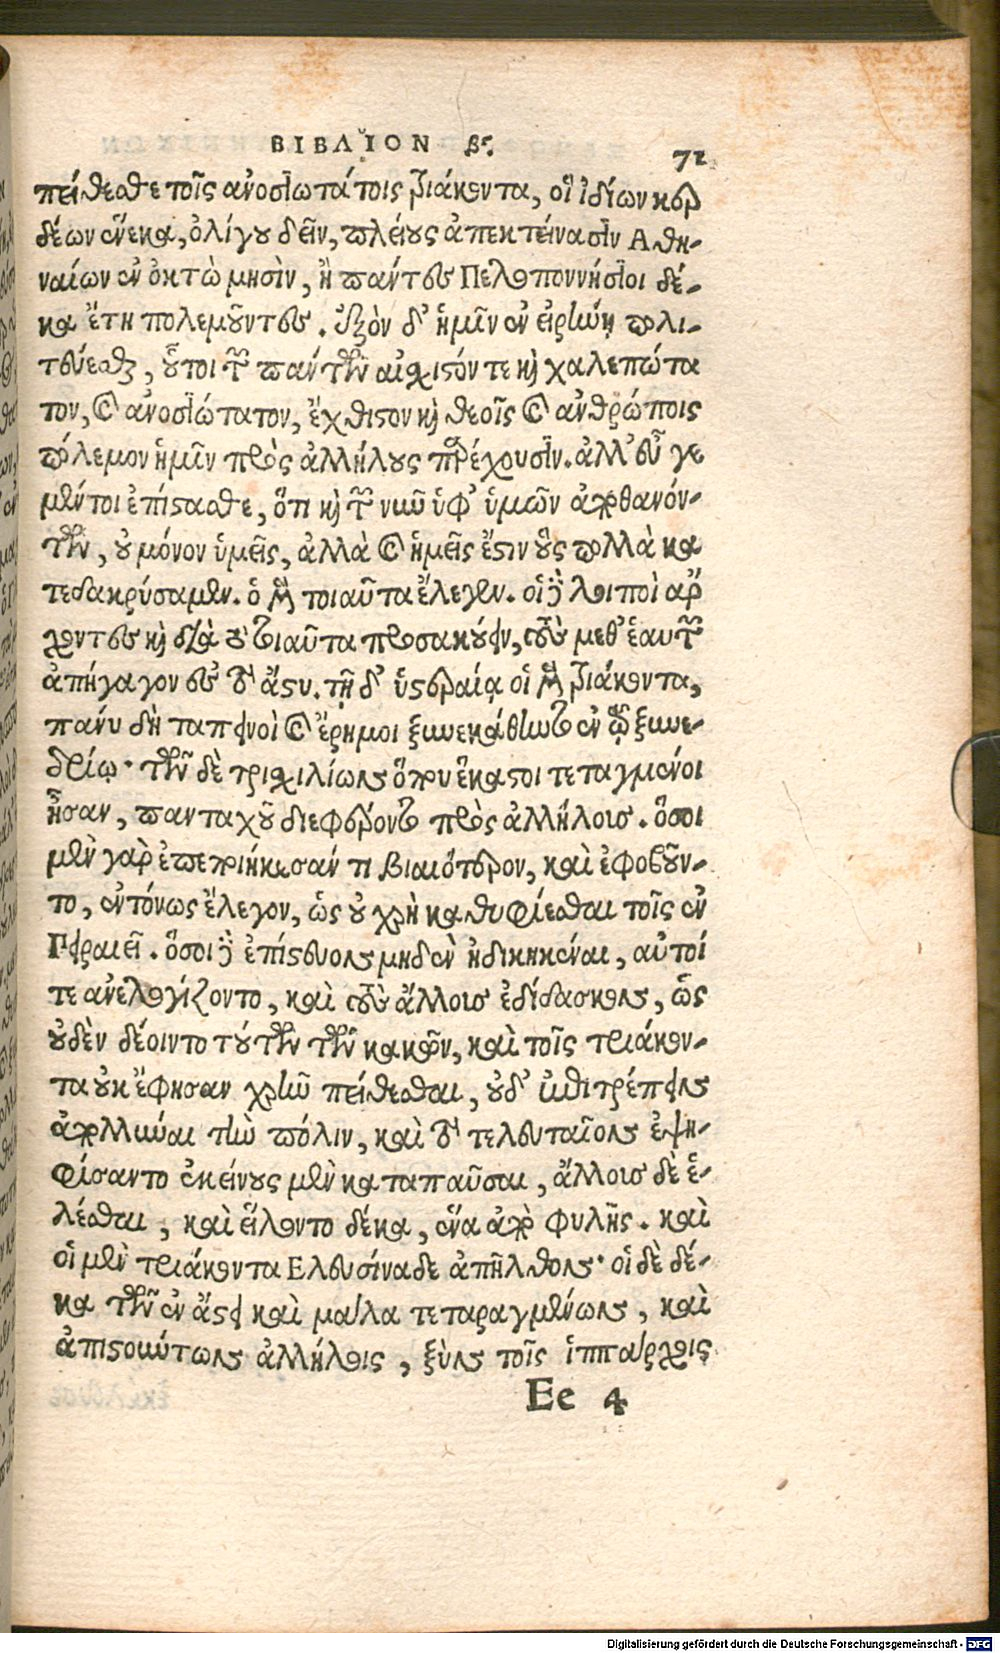 ΒΙΒΛΙΟΝ β.
71
πείθεσθε τοῖς ἀνοσιωτάτοις τριάκοντα, οἳ ἰδίων κερ
δέων ἕνεκα, ὀλίγου δεῖν, πλείους ἀπεκτείνασιν Ἀθη-
ναίων ἐν ὀκτὼ μησὶν, ἢ πάντες Πελοποννήσιοι δέ-
κα ἔτη πολεμοῦντες. ἐξὸν δ' ἡμῖν ἐν εἰρήνῃ πολι-
τεύεσθαι, οὗτοι τὸν πάντων αἴσχιστόν τε καὶ χαλεπώτα
τον, καὶ ἀνοσιώτατον, ἔχθιστον καὶ θεοῖς καὶ ἀνθρώποις
πόλεμον ἡμῖν πρὸς ἀλλήλους παρέχουσιν. ἀλλ' εὖ γε
μέντοι ἐπίστασθε, ὅτι καὶ τῶν νῦν ὑφ' ὑμῶν ἀποθανόν-
των, οὐ μόνον ὑμεῖς, ἀλλὰ καὶ ἡμεῖς ἔστιν οὓς πολλὰ κα
τεδακρύσαμεν. ὁ μὲν τοιαῦτα ἔλεγεν. οἱ δὲ λοιποὶ ἄρ
χοντες καὶ διὰ τὸ τοιαῦτα προσακούειν, τοὺς μεθ' ἑαυτῶν
ἀπήγαγον εἰς τὸ ἄστυ. τῇ δ' ὑστεραίᾳ οἱ μὲν τριάκοντα,
πάνυ δὴ ταπεινοὶ καὶ ἔρημοι ξυνεκάθηντο ἐν τῷ ξυνε-
δρίῳ· τῶν δὲ τρισχιλίων ὅπου ἕκαστοι τεταγμένοι
ἦσαν, πανταχοῦ διεφέροντο πρὸς ἀλλήλους. ὅσοι
μὲν γὰρ ἐπεποιήκεσάν τι βιαιότερον, καὶ ἐφοβοῦν-
το, ἐντόνως ἔλεγον, ὡς οὐ χρὴ καθυφίεσθαι τοῖς ἐν
Πειραιεῖ. ὅσοι δὲ ἐπίστευον μηδὲν ἠδικηκέναι, αὐτοί
τε ἀνελογίζοντο, καὶ τοὺς ἄλλους ἐδίδασκον, ὡς
οὐδὲν δέοιντο τούτων τῶν κακῶν, καὶ τοῖς τριάκον-
τα οὐκ ἔφησαν χρῆν πείθεσθαι, οὐδ' ἐπιτρέπειν
ἀπολλύναι τὴν πόλιν, καὶ τὸ τελευταῖον ἐψη-
φίσαντο ἐκείνους μὲν καταπαῦσαι, ἄλλους δὲ ἑ-
λέσθαι, καὶ εἵλοντο δέκα, ἕνα ἀπὸ φυλῆς. καὶ
οἱ μὲν τριάκοντα Ελευσίναδε ἀπῆλθον· οἱ δὲ δέ-
κα τῶν ἐν ἄστει καὶ μάλα τεταραγμένων, καὶ
ἀπιστούντων ἀλλήλοις, ξὺν τοῖς ἱππάρχοις
Ee 4
Digitalisierung gefördert durch die Deutsche Forschungsgemeinschaft - DFG